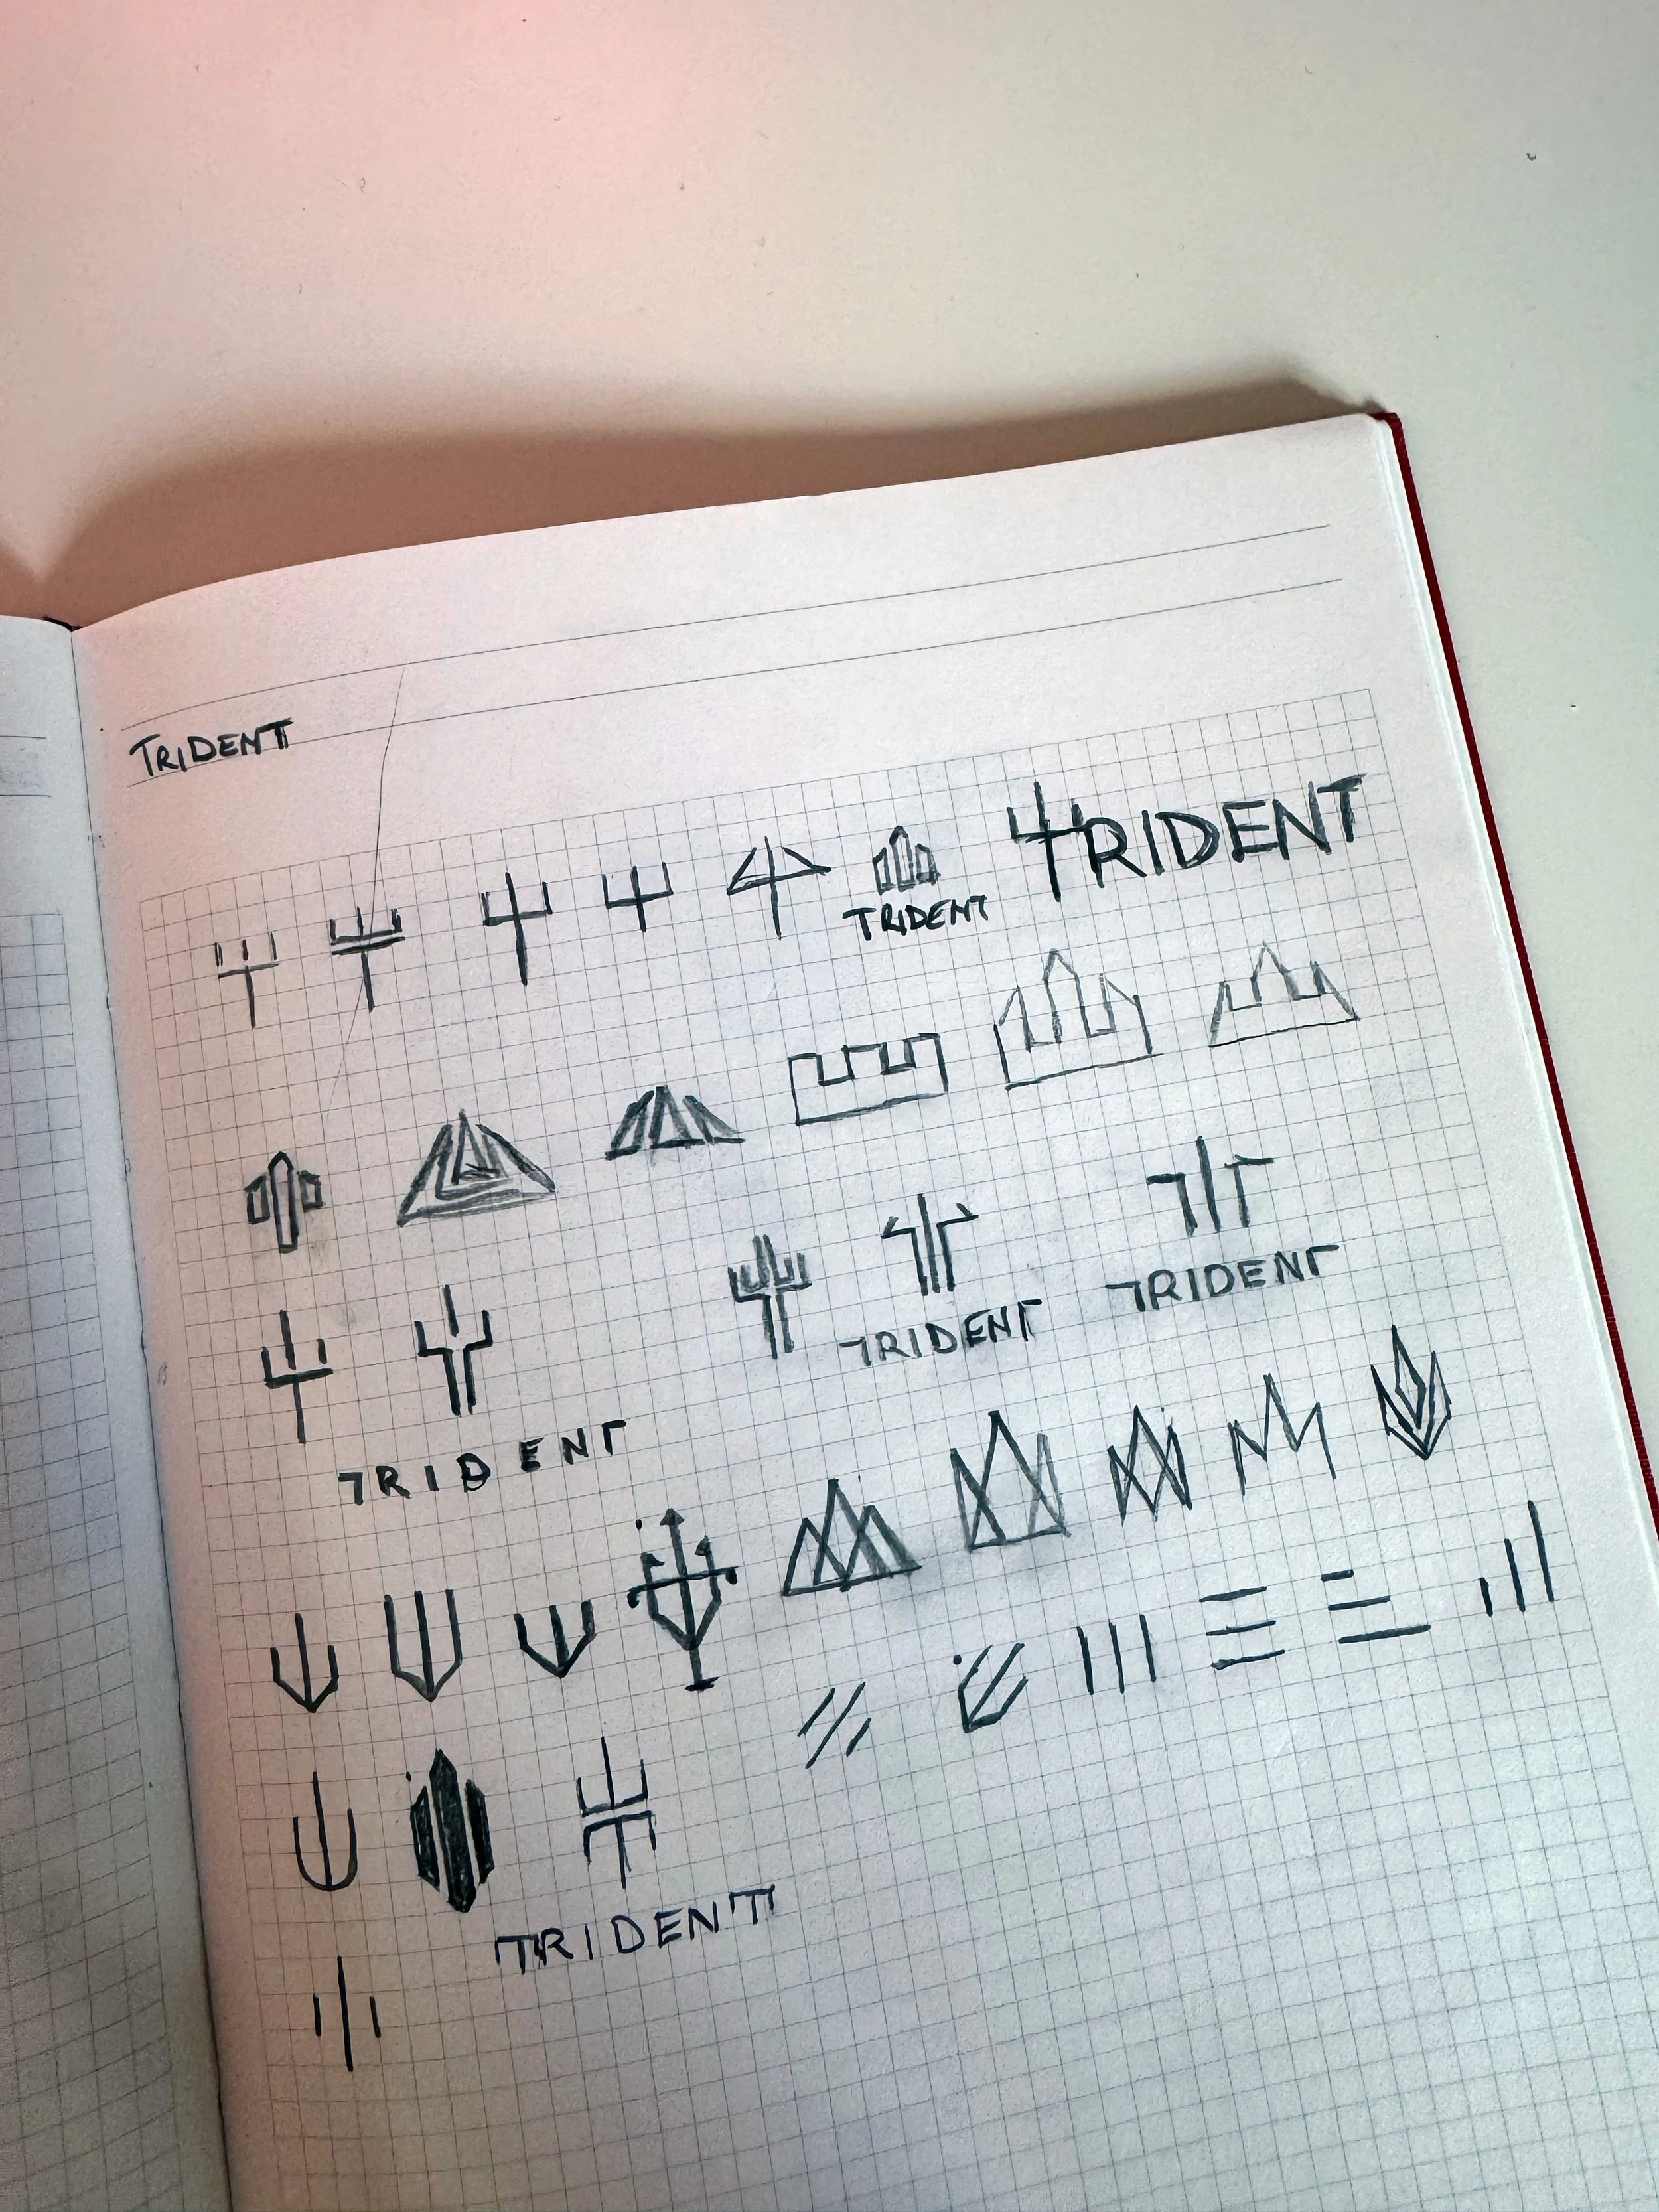 TRIDENT
TRIDENT
TRIDENT
TRIDENT
TRIDENT
TRIDENT
TRIDENT